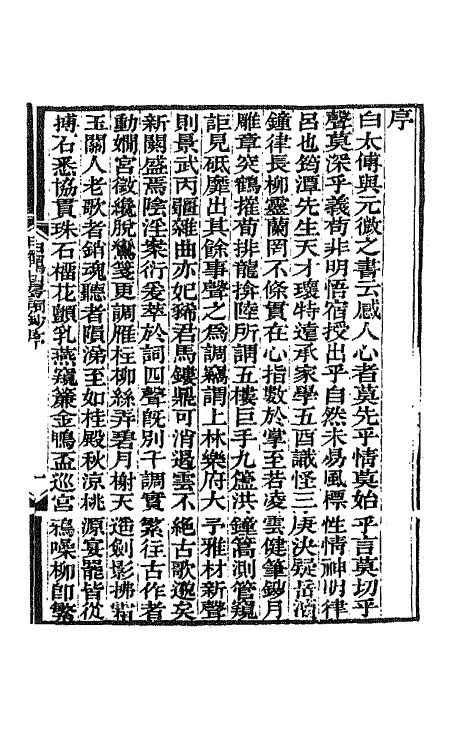 序
白太傅與元微之書云感人心者莫先乎情莫始乎言莫切乎
聲莫深乎義苟非明悟宿授出乎自然未易風標性情神明律
呂也筠潭先生天才瓌特遠承家學五酉識怪三庚決疑岳瀆
鐘律長柳靈蘭罔不條貫在心指數於掌至若凌雲健筆鈔月
雕章突鶴摧荀排龍揜陸所謂五樓巨手九簴洪鐘篙測管窺
詎見砥靡出其餘事聲之為調竊謂上林樂府大予雅材新聲
則景武丙疆雜曲亦妃豨君馬鏤鼎可消過雲不絕古歌邈矣
新闋盛焉陰淫案衍爰萃於詞四聲旣別千調實繁往古作者
動嫺宮徵纔脫鸞箋更調雁柱柳絲弄碧月榭天遙劍影拂霜
玉關人老歌者銷魂聽者隕涕至如桂殿秋涼桃源宴罷皆從
搏石悉協貫珠石櫺花顫乳燕窺簾金鴨盃巡宮鴉噪柳卽繁
序
一